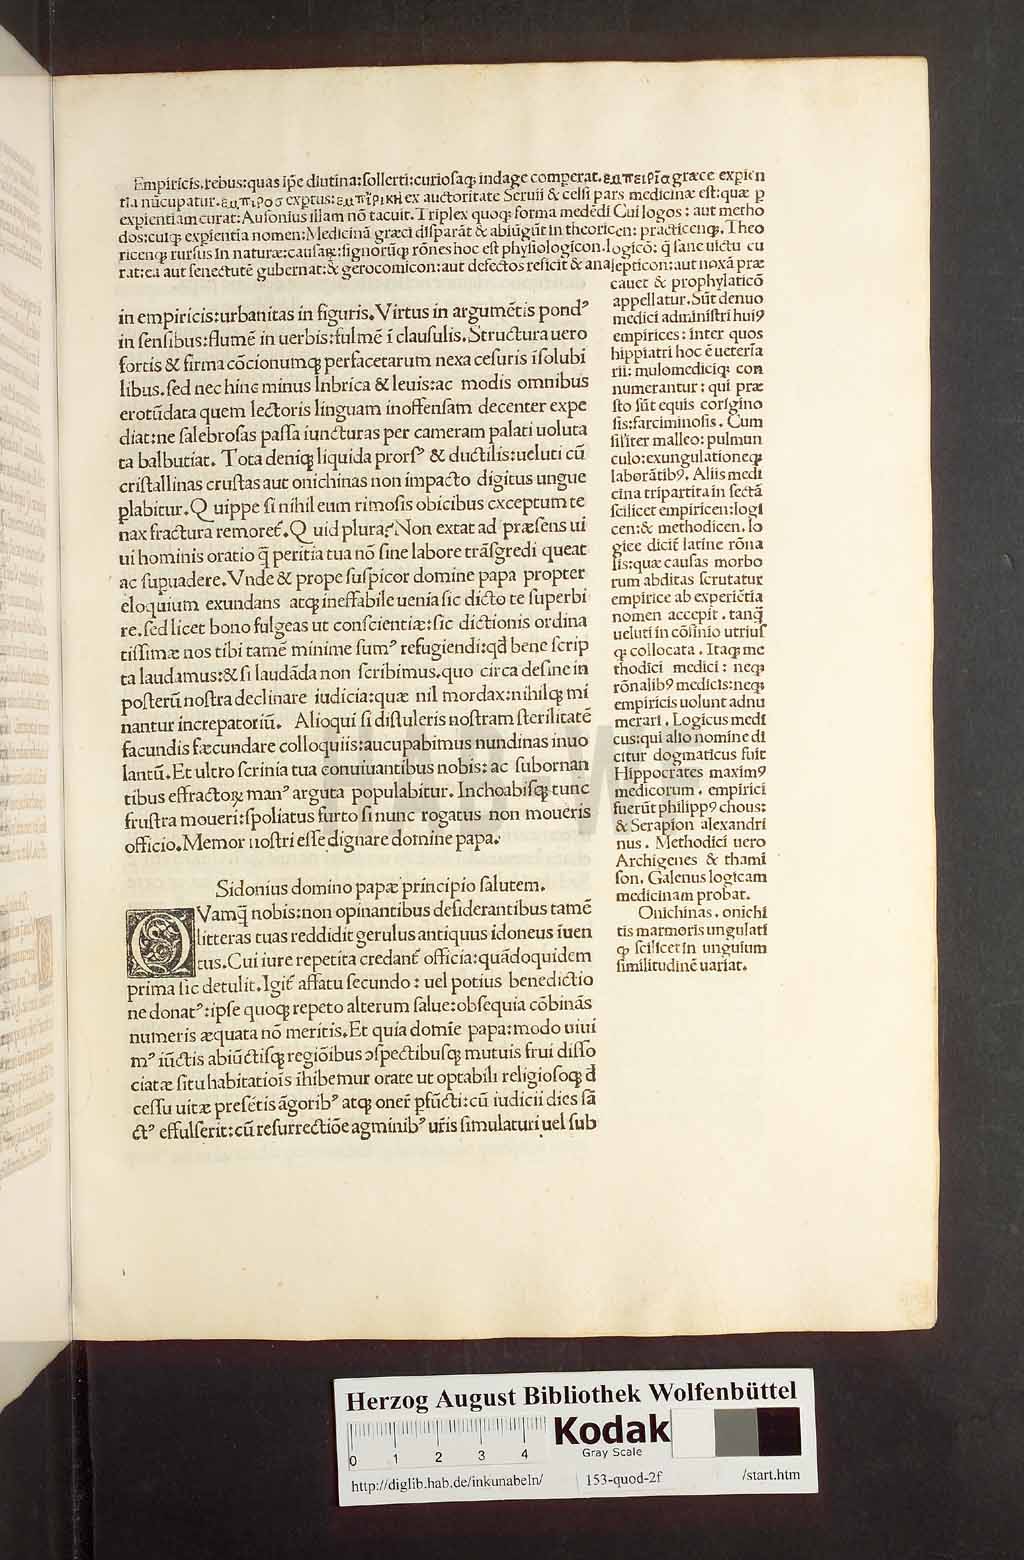 Empiricis.rebus:quas ip̄e diutina:ſollerti:curioſaqꝫ indage comperat.εμπειρία græce expien
tia nūcupatur.εμπιροσ exptus:εμπῒρικη ex auctoritate Seruii & celſi pars medicinæ eſt:quæ ꝑ
expientiam curat:Auſonius illam nō tacuit.Triplex quoqꝫ forma medēdi Cui logos : aut metho
dos:cuiqꝫ expientia nomen:Medicinā græci diſparāt & abiūgūt in theoricen: practicenqꝫ.Theo
ricenqꝫ rurſus in naturæ:cauſaꝝ:ſignorūqꝫ rōnes hoc eſt phyſiologicon.logicō: q̄ ſane uictu cu
rat:ea aut ſenectutē gubernat:& gerocomicon:aut defectos reficit & analepticon:aut noxā præ
cauet & prophylaticō
appellatur.Sūt denuo
medici adminiſtri huiꝰ
empirices: inter quos
hippiatri hoc ē ueteria
rii: mulomediciqꝫ con
numerantur: qui præ
ſto ſūt equis corigino
ſis:farciminoſis. Cum
ſil'iter malleo: pulmun
culo:exungulationeqꝫ
laborātibꝰ. Aliis medi
cina tripartita in ſectā
ſcilicet empiricen:logi
cen:& methodicen. lo
gice dicit̄ latine rōna
lis:quæ cauſas morbo
rum abditas ſcrutatur
empirice ab experiētia
nomen accepit . tanq̄
ueluti in cōfinio utriuſ
qꝫ collocata . Itaqꝫ me
thodici medici : neqꝫ
rōnalibꝰ medicis:neqꝫ
empiricis uolunt adnu
merari . Logicus medi
cus:qui alio nomine di
citur dogmaticus fuit
Hippocrates maximꝰ
medicorum . empirici
fuerūt philippꝰ chous:
& Serapion alexandri
nus . Methodici uero
Archigenes & thami
ſon. Galenus logicam
medicinam probat.
Onichinas . onichi
tis marmoris ungulati
qꝫ ſcilicet in unguium
ſimilitudinē uariat.
in empiricis:urbanitas in figuris.Virtus in argumētis pondꝰ
in ſenſibus:flumē in uerbis:fulmē ī clauſulis.Structura uero
fortis & firma cōcionumqꝫ perfacetarum nexa ceſuris iſolubi
libus.ſed nec hinc minus lnbrica & leuis:ac modis omnibus
erotūdata quem lectoris linguam inoffenſam decenter expe
diat:ne ſalebroſas paſſa iuncturas per cameram palati uoluta
ta balbutiat. Tota deniqꝫ liquida prorſꝰ & ductilis:ueluti cū
criſtallinas cruſtas aut onichinas non impacto digitus ungue
plabitur.Quippe ſi nihil eum rimoſis obicibus exceptum te
nax fractura remoret̄.Quid plura?Non extat ad præſens ui
ui hominis oratio q̄ peritia tua nō ſine labore trāſgredi queat
ac ſupuadere.Vnde & prope ſuſpicor domine papa propter
eloquium exundans atqꝫ ineffabile uenia ſic dicto te ſuperbi
re.ſed licet bono fulgeas ut conſcientiæ:ſic dictionis ordina
tiſſimæ nos tibi tamē minime ſumꝰ refugiendi:qđ bene ſcrip
ta laudamus:& ſi laudāda non ſcribimus.quo circa deſine in
poſterū noſtra declinare iudicia:quæ nil mordax:nihilqꝫ mi
nantur increpatoriū. Alioqui ſi diſtuleris noſtram ſterilitatē
facundis fæcundare colloquiis:aucupabimus nundinas inuo
lantū.Et ultro ſcrinia tua conuiuantibus nobis: ac ſubornan
tibus effractoꝝ manꝰ arguta populabitur. Inchoabiſqꝫ tunc
fruſtra moueri:ſpoliatus furto ſi nunc rogatus non moueris
officio.Memor noſtri eſſe dignare domine papa.
Sidonius domino papæ principio ſalutem.
QVamq̄ nobis:non opinantibus deſiderantibus tamē
litteras tuas reddidit gerulus antiquus idoneus iuen
tus.Cui iure repetita credant̄ officia:quādoquidem
prima ſic detulit.Igit̄ affatu ſecundo : uel potius benedictio
ne donatꝰ:ipſe quoqꝫ repeto alterum ſalue:obſequia cōbinās
numeris æquata nō meritis.Et quia domīe papa:modo uiui
mꝰ iūctis abiūctiſqꝫ regiōibus ↄſpectibuſqꝫ mutuis frui diſſo
ciatæ ſitu habitatiois īhibemur orate ut optabili religioſoqꝫ đ
ceſſu uitæ preſētis āgoribꝰ atqꝫ oner̄ pfūcti:cū iudicii dies ſā
ctꝰ effulſerit:cū reſurrectiōe agminibꝰ ur̄is ſimulaturi uel ſub
HAB-W
Herzog August Bibliothek Wolfenbüttel
0 1 2 3 4
Kodak
Gray Scale
http://diglib.hab.de/inkunabeln/ 153-quod-2f /start.htm